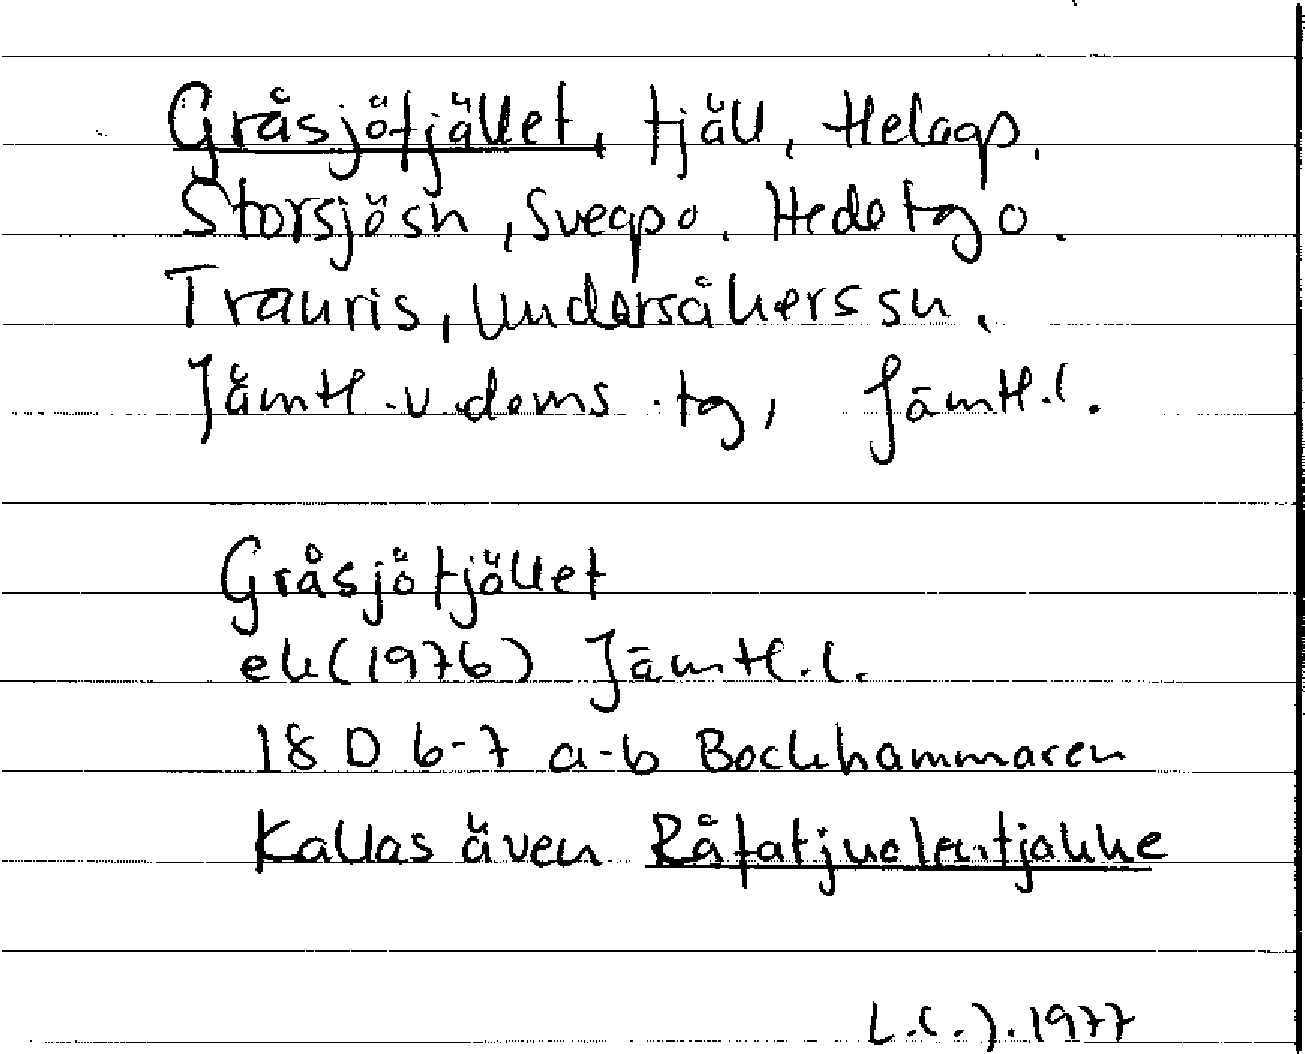 Gråsjöfjället, fjäll, Helagsp.
Storsjösn, Svegsp o. Hede tg o.
Tranris, Undersåkers sn.
Jämtl. v. doms. tg, Jämtl. l.
Gråsjöfjället
ek (1976) Jämtl. l.
18 D 6-7 a-b Bockhammaren
Kallas även
L. C. J. 1977